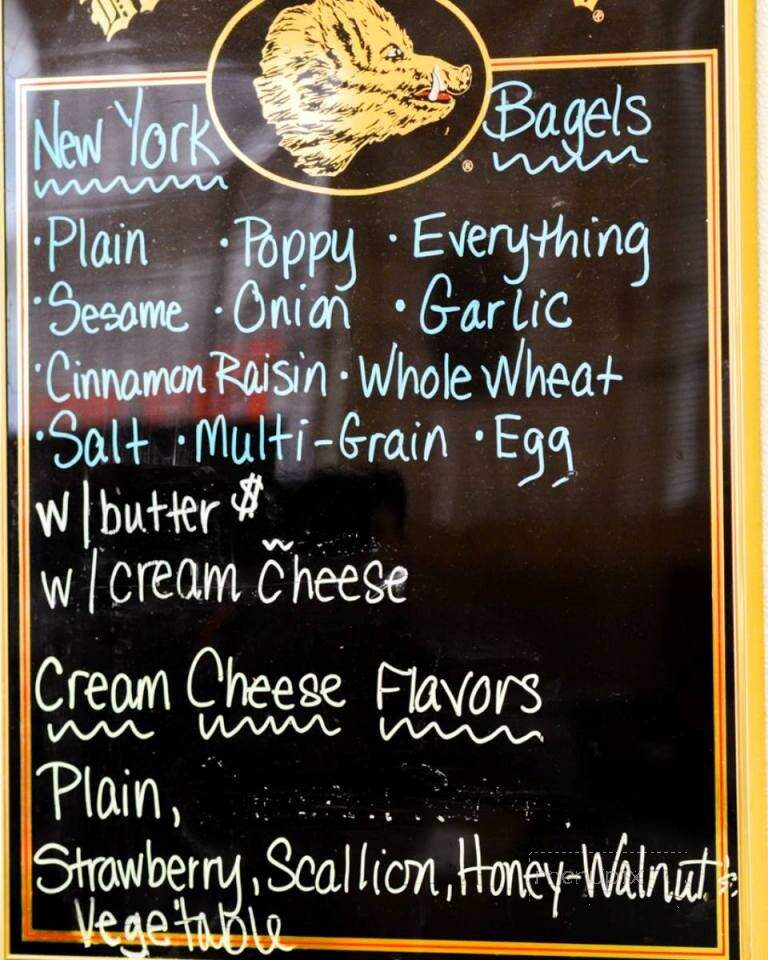 New York Bagels
·Plain ·Poppy ·Everything
·Sesame ·Onion ·Garlic
·Cinnamon Raisin ·Whole Wheat
·Salt ·Multi-Grain ·Egg
w/butter $
w/cream cheese
Cream Cheese Flavors
Plain,
Strawberry, Scallion, Honey-Walnut
Vegetable